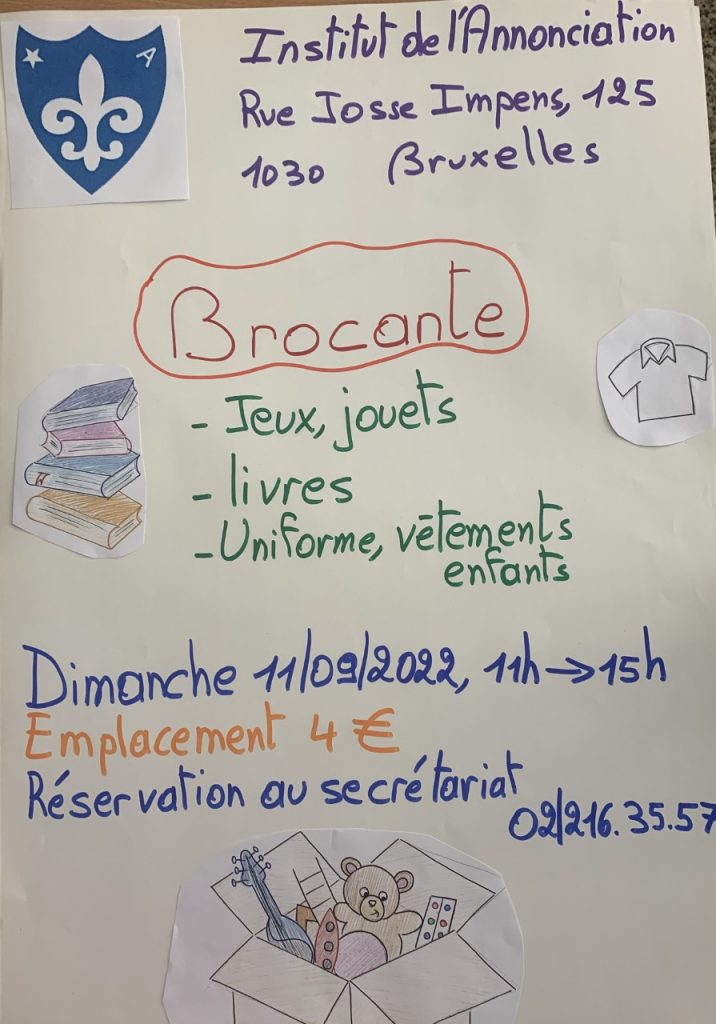 A
Institut de l'Annonciation
Rue Josse Impens, 125
1030 Bruxelles
Brocante
- Jeux, jouets
- livres
- Uniforme, vêtements
enfants
Dimanche 11/09/2022, 11h → 15h
Emplacement 4 €
Réservation au secrétariat
02/216.35.57